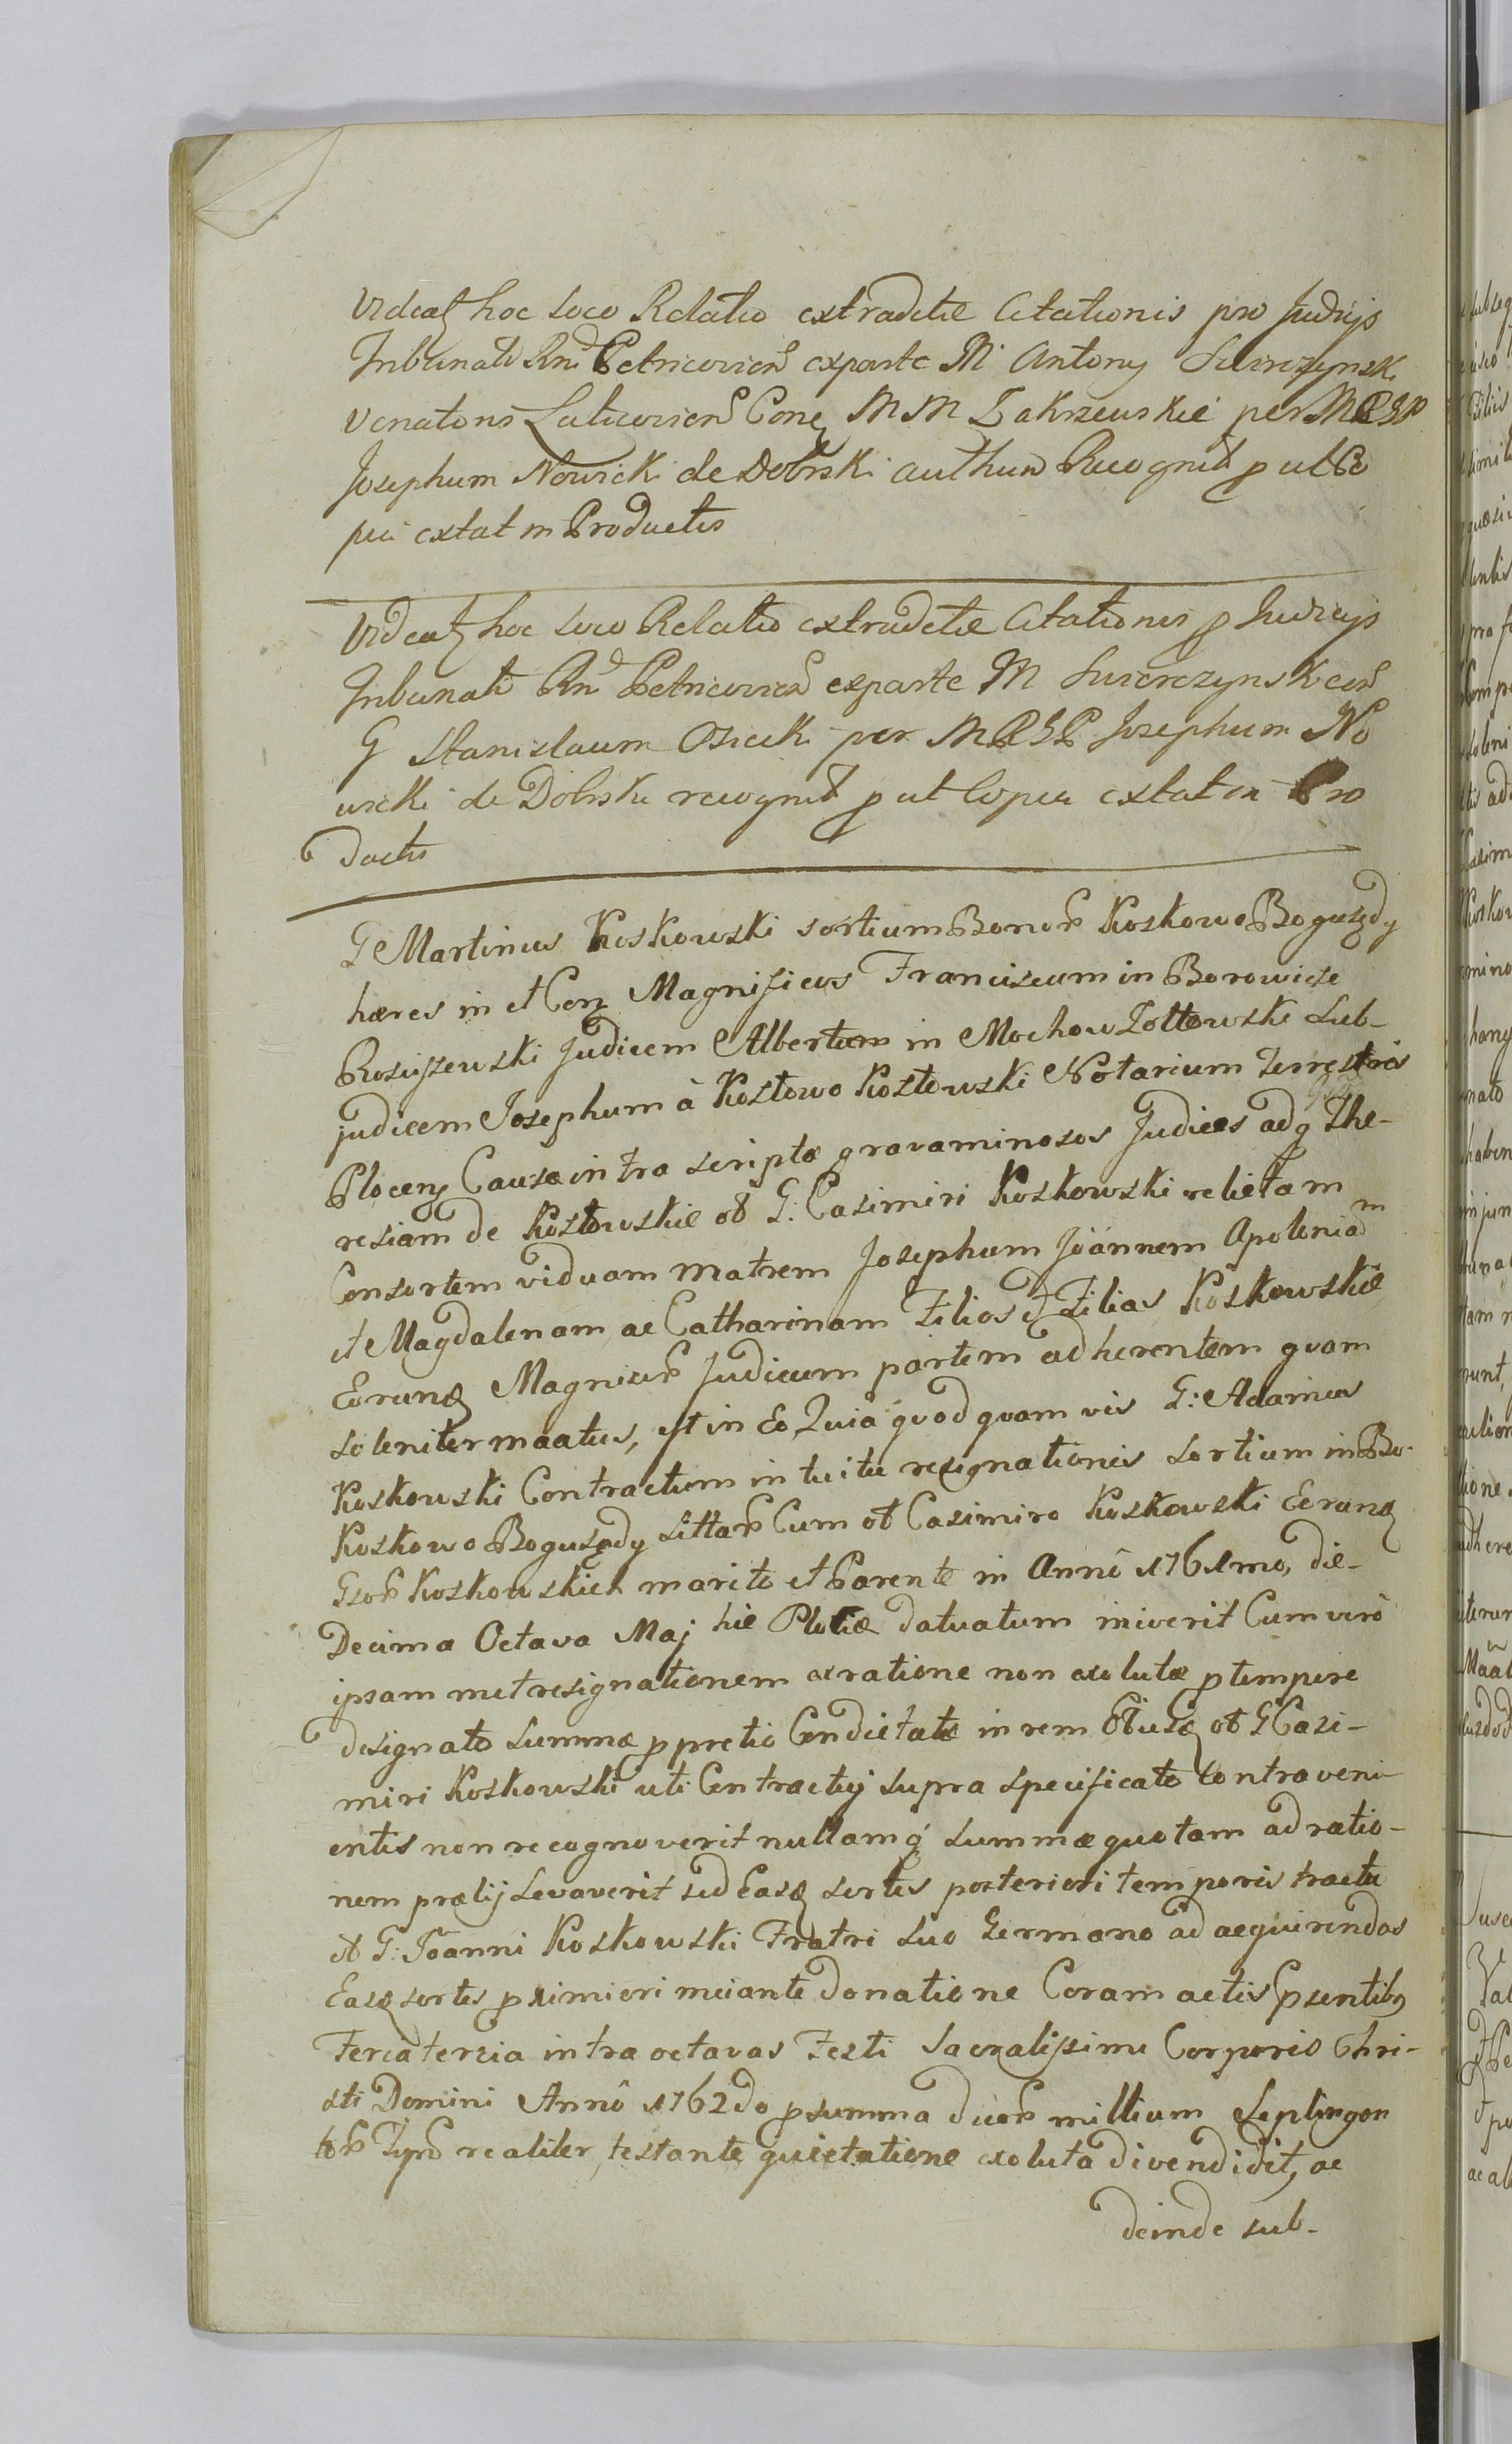 Videatz hoc loco Relatio extraditæ Citationis pro Judicijs
Tribunali Rni Petricovien exparte M Antony Swierczynski
Venatoris Laticovien Cone M M Zakrzewskie per MRGR
Josephum Nowicki de Dobrski authum Recognit p ut Co
pia extat in Productis
Videatz hoc loco Relatio extraditæ Citationis p Judicijs
Tribunali Rni Petricovien exparte M Swierczynski con
G Stanislaum Osiecki per MRGR Josephum No
wicki de Dobrski recognit p ut Copia extat in Pro
ductis
G Martinus Koskowski sortium Bonor Koskowo Boguszdy
hæres in et Con Magnificos Franciscum in Borowicze
Rosciszewski Judicem Albertum in Mochow Zoltowski Sub-
judicem Josephum à Kostowo Kostowski Notarium Terrestris
Plocens Causæ intra scriptæ gravaminosos Judices adq The-
resiam de Kostowskie ol G: Casimiri Koskowski relictam
Consortem viduam Matrem Josephum Joannem Apoloniam
et Magdalenam ac Catharinam Filios et Filias Koskowskie
Eorunq Magnicor Judicum partem adherentem quam
soleniter maatus, est in Eo Quia quod quam vis G: Adamus
Koskowski Contractum in tuitu resignationis sortium in Bo-
Koskowo Boguszdy sittar Cum ol Casimiro Koskowski Eorunq
Gsor Koskowskich marito et Parente in Annô 1761mo, die
Decima Octava Maj hic Plociæ datuatum iniverit Cum verò
ipsam met resignationem ex ratione non exolutæ p tempore
designato summæ p pretio Condictatæ in rem Ejusq ol G Casi-
miri Koskowski uti Contractuj supra specificato Contraveni-
entis non recognoverit nullamq summæ quotam ad ratio-
nem prætij Levaverit sed Easq sortes posteriori temporis tractu
et G: Joanni Koskowski Fratri suo Germano ad acquirendas
Easq sortes p ximiori mciante donatione Coram actis psentibq
Feria tercia intra octavas Festi Sacratissimi Corporis Chri-
sti Domini Annô 1762do p summa duor millium Septingen
tor Typo realiter, testante quietatione exoluta divendidit, ac
deinde sub-